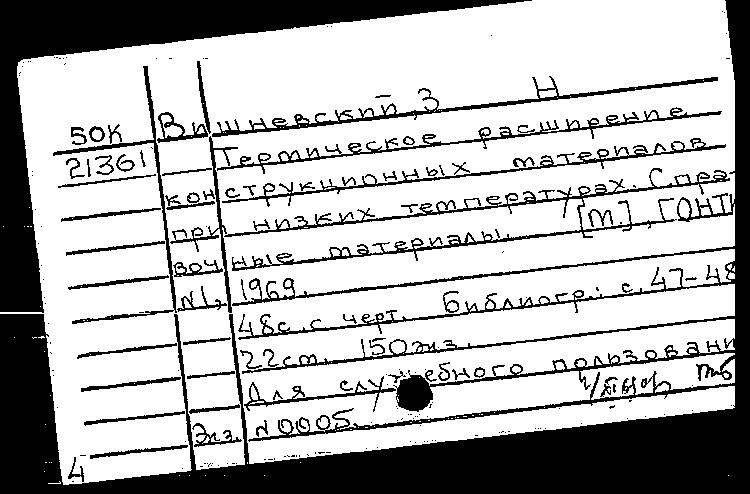 50К Вишневский, З Н
21361 Термическое расширение
конструкционных материалов
при низких температурах. Спра-
вочные материалы. [М.], ГОНТИ
N1, 1969.
48с. с черт. Библиогр.: с. 47-48
22см. 150экз.
Для служебного пользовани
Экз. N0005.
4